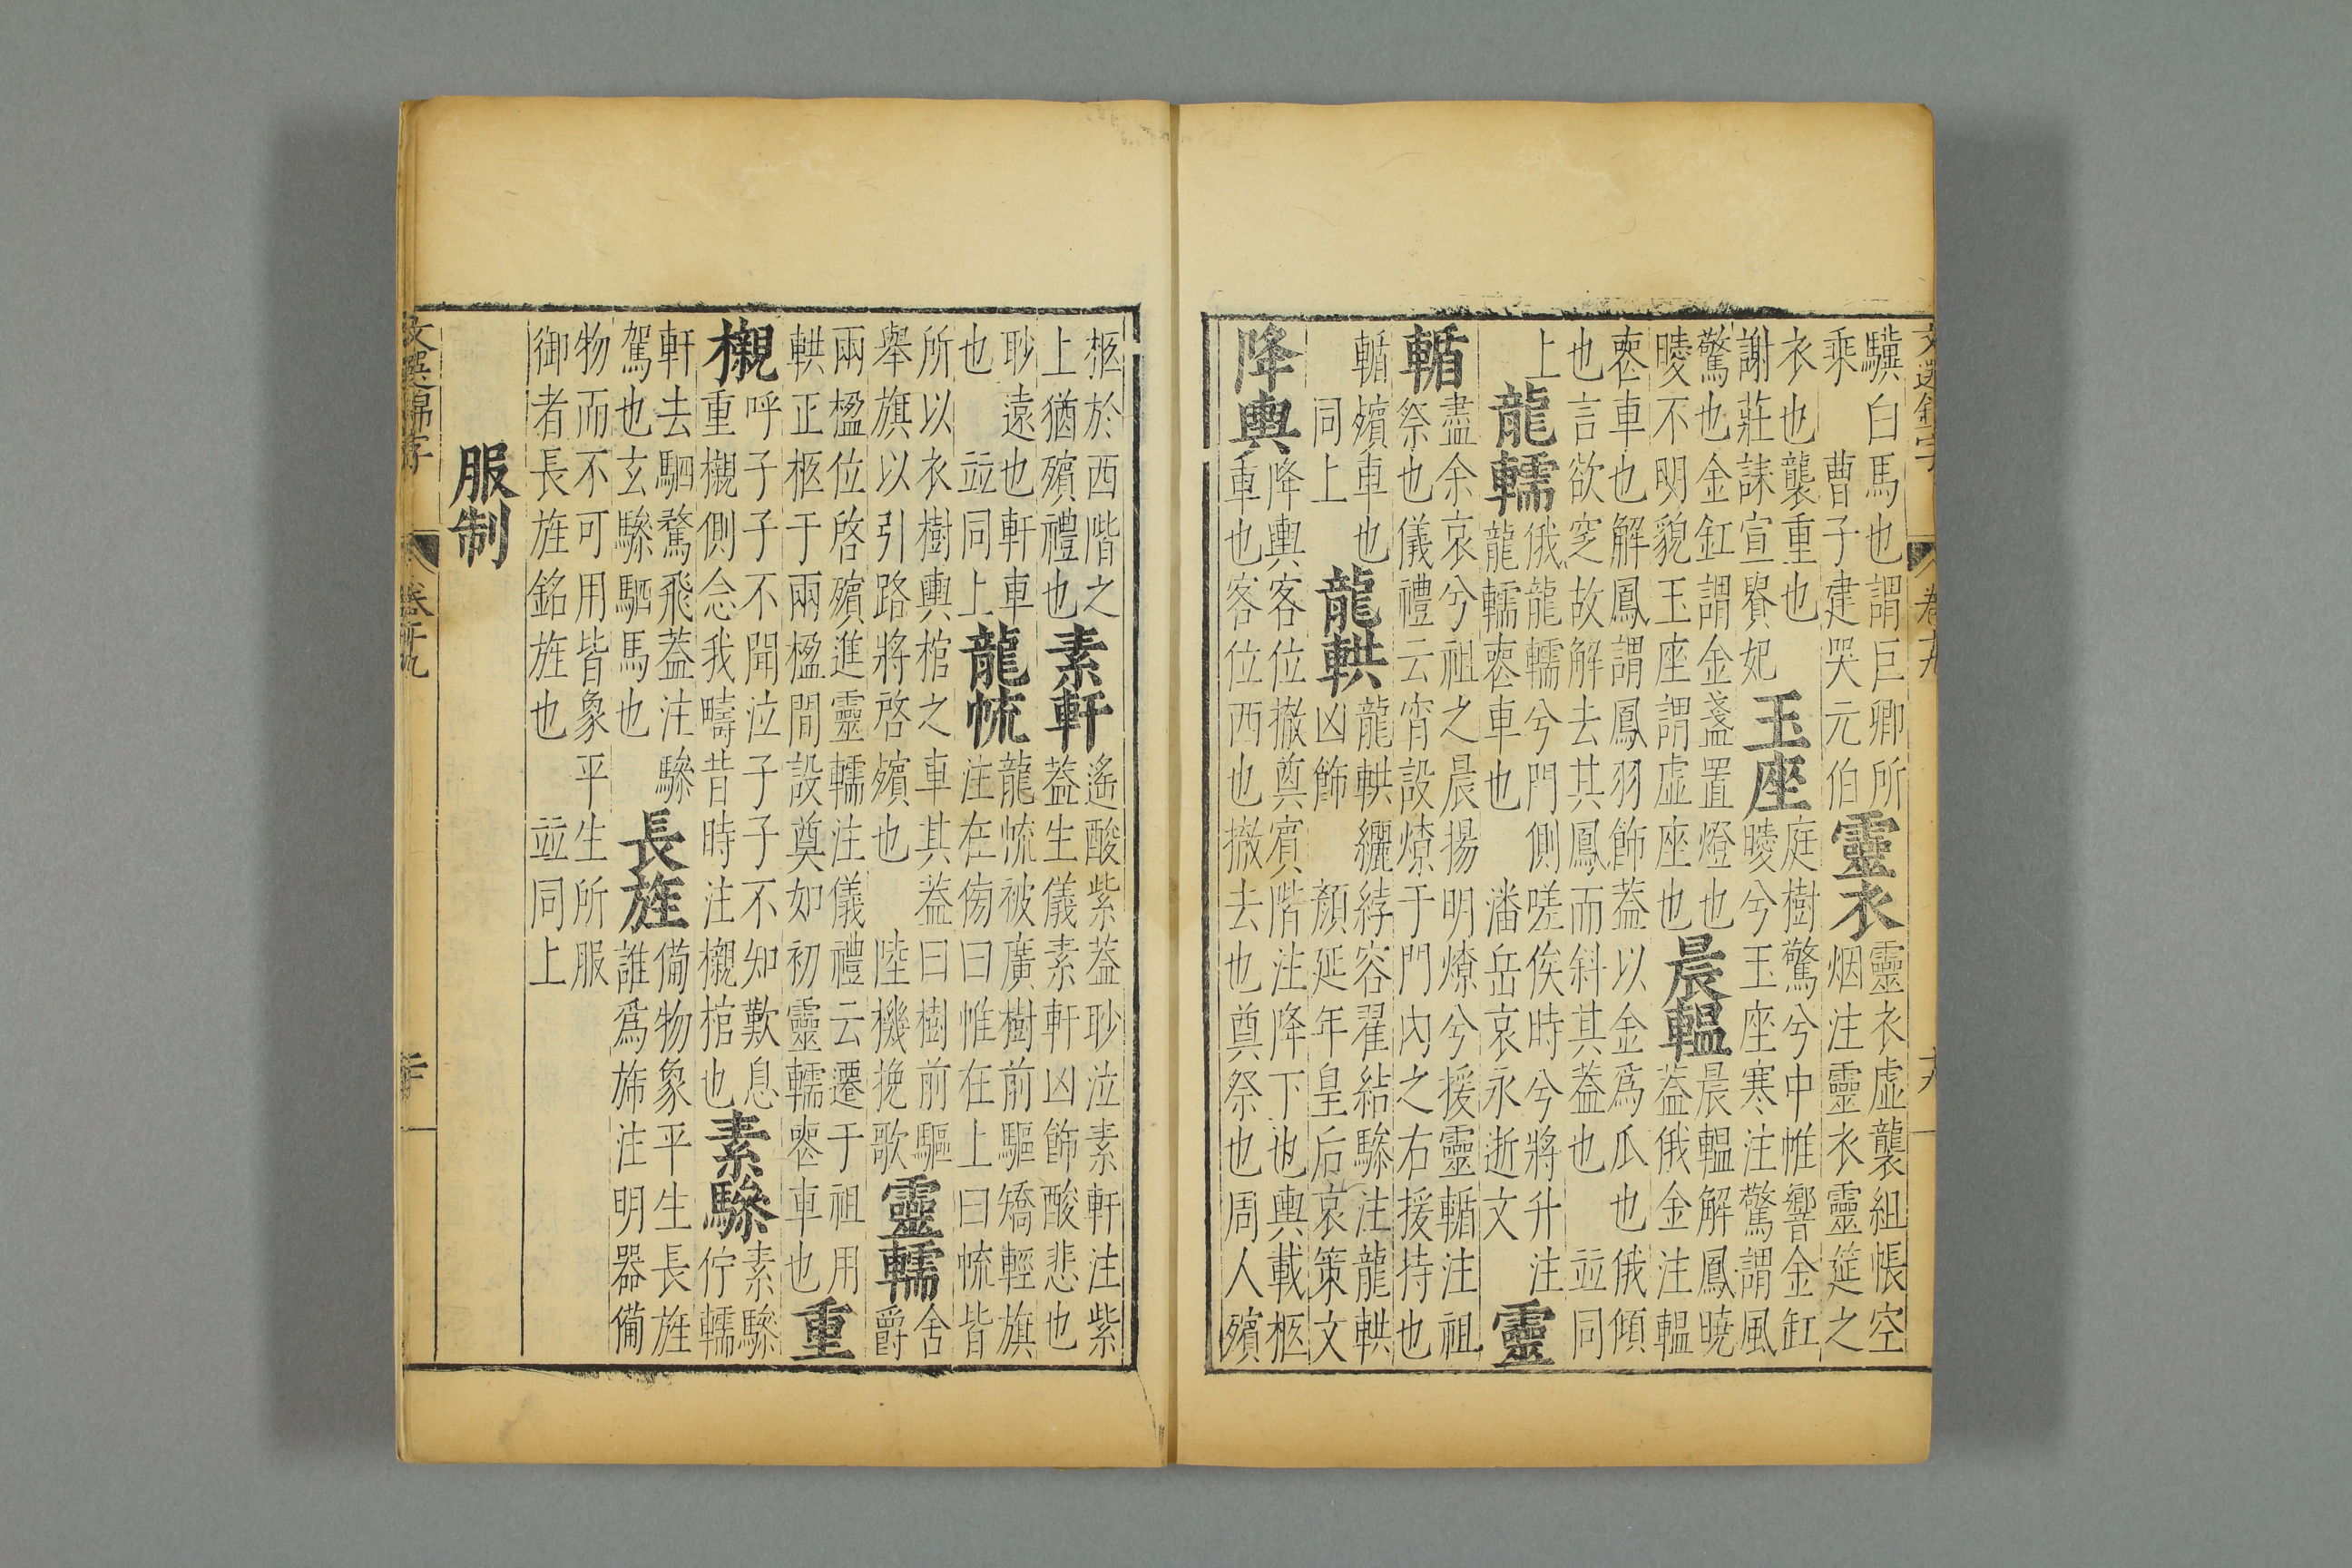 文選錦字 卷十九 十九
驥白馬也謂巨卿所
乘 曹子建哭元伯
靈衣
靈衣虛襲組帳空
烟注靈衣靈筵之
衣也襲重也
謝莊誄宣貴妃
玉座
庭樹驚兮中帷響金缸
曖兮玉座寒注驚謂風
驚也金釭謂金盞置燈也
曖不明貌玉座謂虛座也
晨轀
晨轀解鳳曉
蓋俄金注轀
喪車也解鳳謂鳳羽飾蓋以金爲爪也俄傾
也言欲窆故解去其鳳而斜其蓋也 並同
上
龍轜
俄龍轜兮門側嗟俟時兮將升注
龍轜喪車也 潘岳哀永逝文
靈
輴
盡余哀兮祖之晨揚明燎兮援靈輴注祖
祭也儀禮云宵設燎于門內之右援持也
輴殯車也
同上
龍輁
龍輁纚綍容翟結驂注龍輁
凶飾 顏延年皇后哀策文
降輿
降輿客位撤奠賓階注降下也輿載柩
車也客位西也撤去也奠祭也周人殯
柩於西階之
上猶殯禮也
素軒
遙酸紫蓋眇泣素軒注紫
蓋生儀素軒凶飾酸悲也
眇遠也軒車
也 並同上
龍㡃
龍㡃被廣樹前驅矯輕旗
注在傍曰帷在上曰㡃皆
所以衣樹輿棺之車其蓋曰樹前驅
舉旗以引路將啓殯也 陸機挽歌
靈轜
舍
爵
兩楹位啓殯進靈轜注儀禮云遷于祖用
輁正柩于兩楹間設奠如初靈轜喪車也
重
櫬
呼子子不聞泣子子不知歎息
重櫬側念我疇昔時注櫬棺也
素驂
素驂
佇轜
軒去駟騖飛蓋注驂
駕也玄驂駟馬也
長旌
備物象平生長旌
誰爲旆注明器備
物而不可用皆象平生所服
御者長旌銘旌也 並同上
服制
文選錦字 卷十九 二十